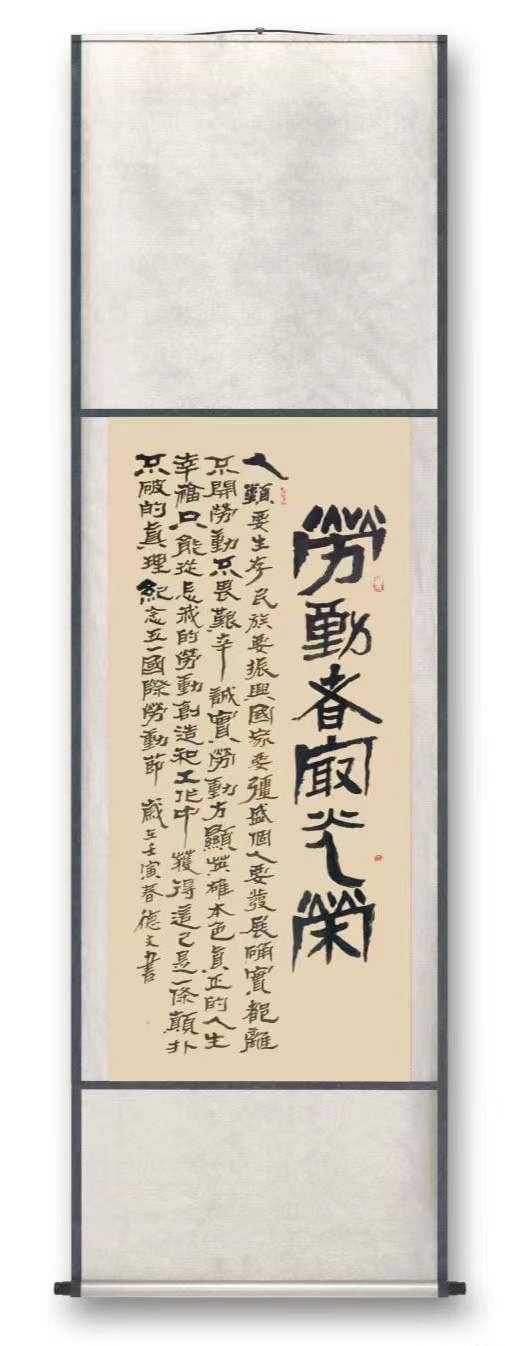 勞動者㝡光榮
人類要生存民族要振興國家要彊盛個人要發展确實都離
不開勞動不畏艱辛誠實勞動方顯英雄本色眞正的人生
幸福只能從忘我的勞動創造和工作中獲得這已是一條顛扑
不破的眞理紀念五一國際勞動節 歲在壬寅春德文書